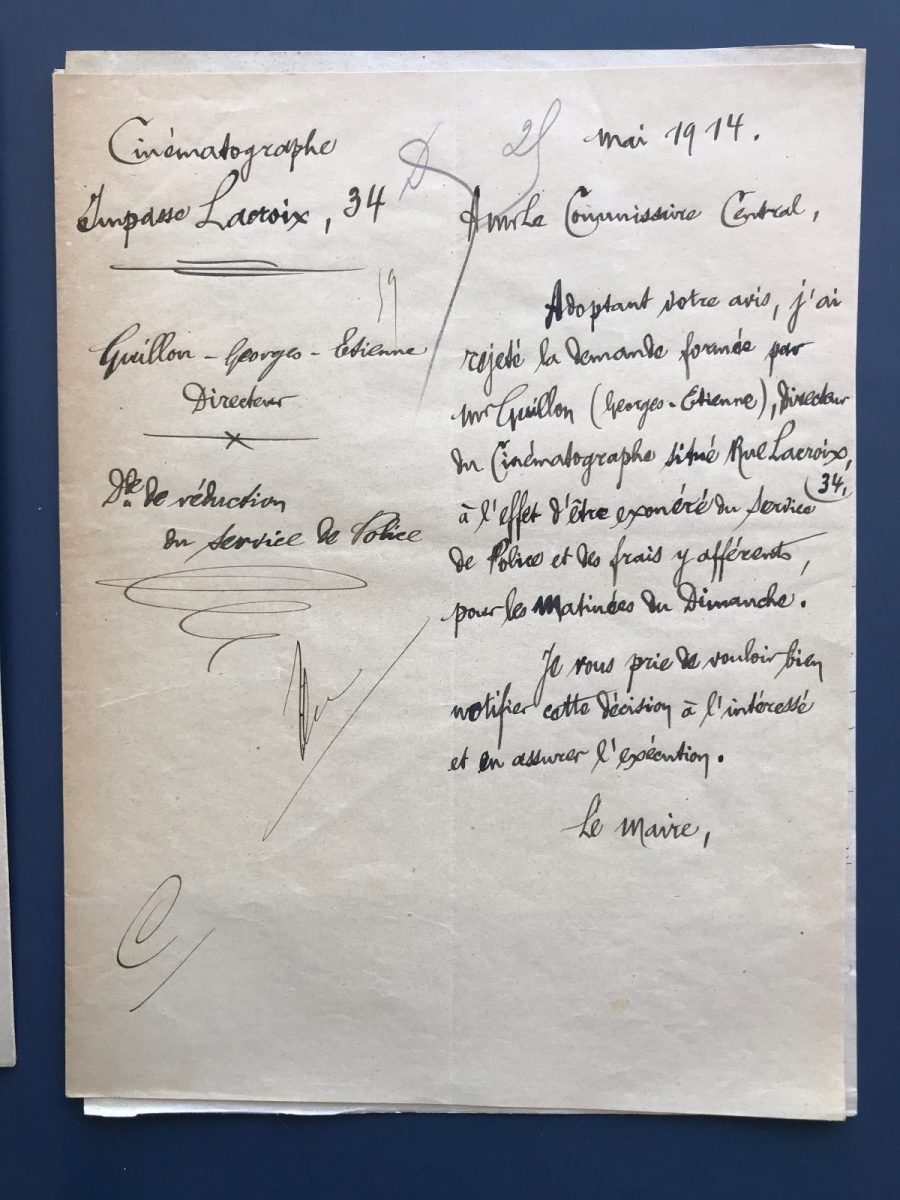 Cinématographe
Impasse Lacroix, 34
Guillon - Georges - Etienne
Directeur
Dde de réduction
du service de Police
25 mai 1914.
A Mr Le Commissaire Central,
Adoptant votre avis, j'ai
rejeté la demande formée par
Mr Guillon (Georges-Etienne), Directeur
du Cinématographe situé Rue Lacroix,
34,
à l'effet d'être exonéré du service
de Police et des frais y afférents,
pour les Matinées du Dimanche.
Je vous prie de vouloir bien
notifier cette décision à l'intéressé
et en assurer l'exécution.
Le Maire,